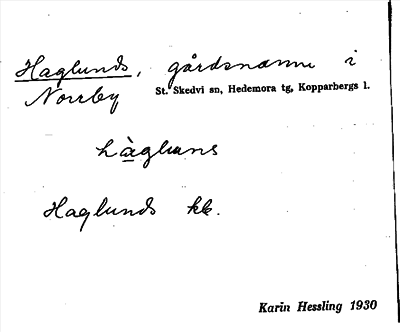 Haglunds, gårdsnamn i
Norrby
St. Skedvi sn, Hedemora tg, Kopparbergs l.
hàgluns
Haglunds kk.
Karin Hessling 1930